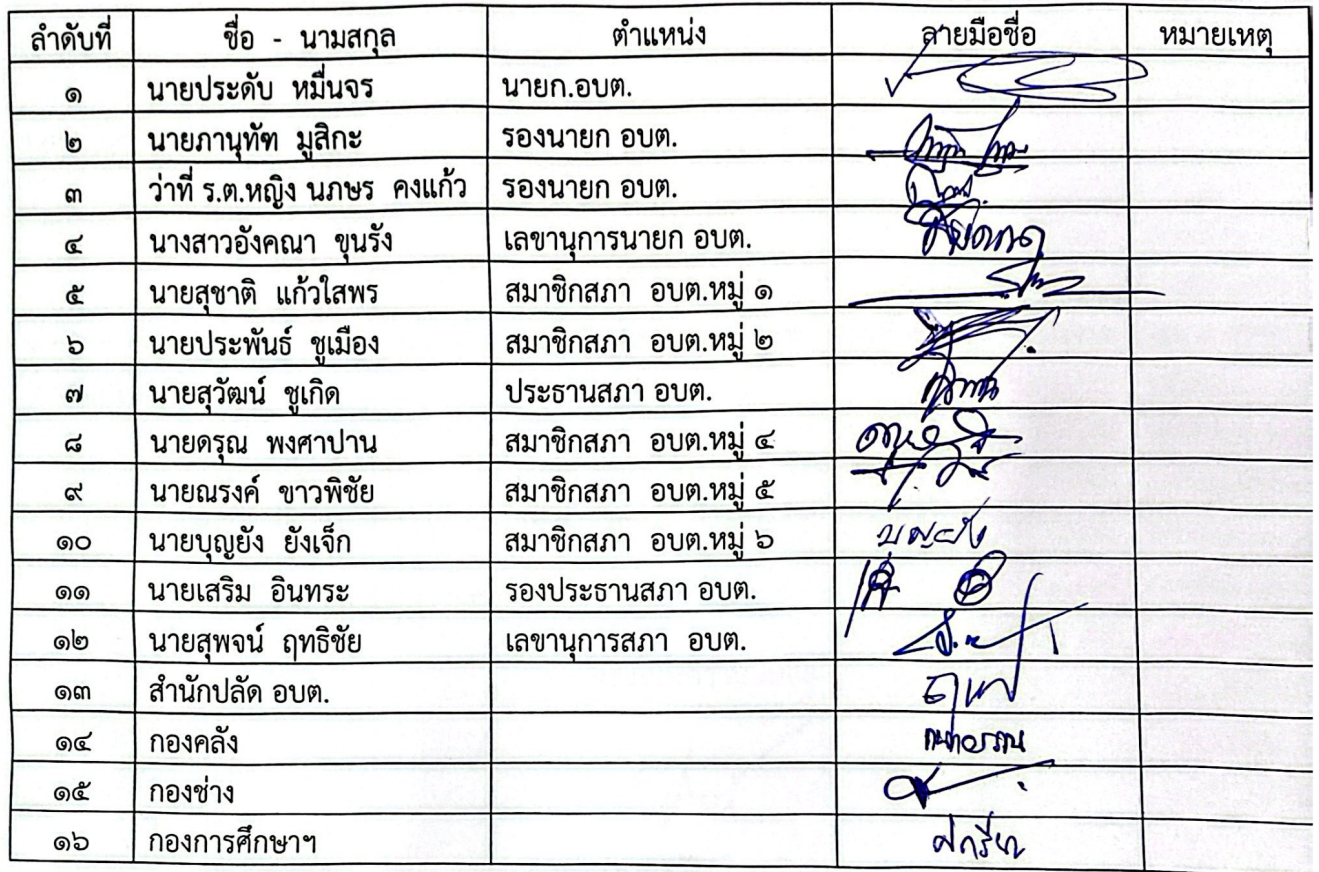 ลำดับที่ ชื่อ - นามสกุล ตำแหน่ง ลายมือชื่อ หมายเหตุ
๑ นายประดับ หมื่นจร นายก.อบต.
๒ นายภานุทัฑ มูสิกะ รองนายก อบต.
๓ ว่าที่ ร.ต.หญิง นภษร คงแก้ว รองนายก อบต.
๔ นางสาวอังคณา ขุนรัง เลขานุการนายก อบต.
๕ นายสุชาติ แก้วใสพร สมาชิกสภา อบต.หมู่ ๑
๖ นายประพันธ์ ชูเมือง สมาชิกสภา อบต.หมู่ ๒
๗ นายสุวัฒน์ ชูเกิด ประธานสภา อบต.
๘ นายดรุณ พงศาปาน สมาชิกสภา อบต.หมู่ ๔
๙ นายณรงค์ ขาวพิชัย สมาชิกสภา อบต.หมู่ ๕
๑๐ นายบุญยัง ยังเจ็ก สมาชิกสภา อบต.หมู่ ๖ บุญยัง
๑๑ นายเสริม อินทระ รองประธานสภา อบต.
๑๒ นายสุพจน์ ฤทธิชัย เลขานุการสภา อบต.
๑๓ สำนักปลัด อบต.
๑๔ กองคลัง
๑๕ กองช่าง
๑๖ กองการศึกษาฯ